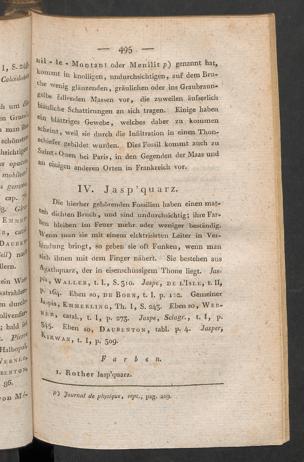 — 495 —
nil - le - Montant oder Menilit p) genannt hat,
kommt in knolligen, undurchsichtigen, auf dem Bru-
che wenig glänzenden, gräulichen oder ins Graubraun-
gelbe fallenden Massen vor, die zuweilen äuſserlich
bläuliche Schattirungen an sich tragen. Einige haben
ein blättriges Gewebe, welches daher zu kommen
scheint, weil sie durch die Infiltration in einem Thon-
schiefer gebildet wurden. Dies Fossil kommt auch zu
Saint-Ouen bei Paris, in den Gegenden der Maas und
an einigen anderen Orten in Frankreich vor.
IV. Jasp'quarz.
Die hierher gehörenden Fossilien haben einen mat-
ten dichten Bruch, und sind undurchsichtig; ihre Far-
ben bleiben im Feuer mehr oder weniger beständig.
Wenn man sie mit einem elektrisirten Leiter in Ver-
bindung bringt, so geben sie oft Funken, wenn man
sich ihnen mit dem Finger nähert. Sie bestehen aus
Agathquarz, der in eisenschüssigem Thone liegt. Jas-
pis, WALLER, t. I., S. 310. Jaspe, DE L'ISLE, t. II,
p. 164. Eben so, DE BORN, t. I. p. 112. Gemeiner
Jaspis, EMMERLING, Th. I, S. 243. Eben so, WER-
NER, catal., t. I, p. 275. Jaspe, Sciagr., t. I, p.
345. Eben so, DAUBENTON, tabl. p. 4. Jasper,
KIRWAN, t. I, p. 309.
Farben.
1. Rother Jasp'quarz.
p) Journal de physique, sept., pag. 219.